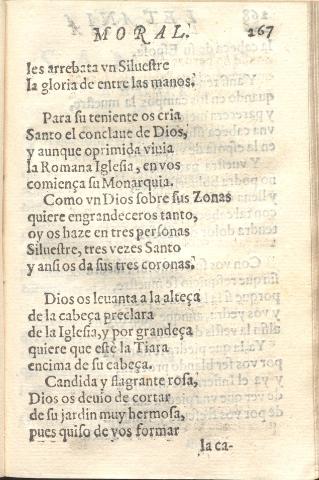 MORAL. 267
les arrebata vn Silueſtre
la gloria de entre las manos.
Para ſu teniente os cria
Santo el conclaue de Dios,
y aunque oprimida viuia
la Romana Igleſia, en vos
comiença ſu Monarquia.
Como vn Dios ſobre sus Zonas
quiere engrandeceros tanto,
oy os haze en tres perſonas
Silueſtre, tres vezes Santo
y anſi os da sus tres coronas.
Dios os leuanta a la alteça
de la cabeça preclara
de la Igleſia, y por grandeça
quiere que eſtè la Tiara
encima de ſu cabeça.
Candida y flagrante roſa,
Dios os deuio de cortar
de ſu jardin muy hermoſa,
pues quiſo de vos formar
la ca-